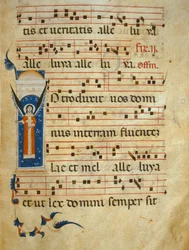 tis et veritatis alle lu ya
Alle luya alle lu ya. offm.
Introduxit vos domi
nus in terram fluentez
lac et mel alle luya
et ut lex domini semper sit